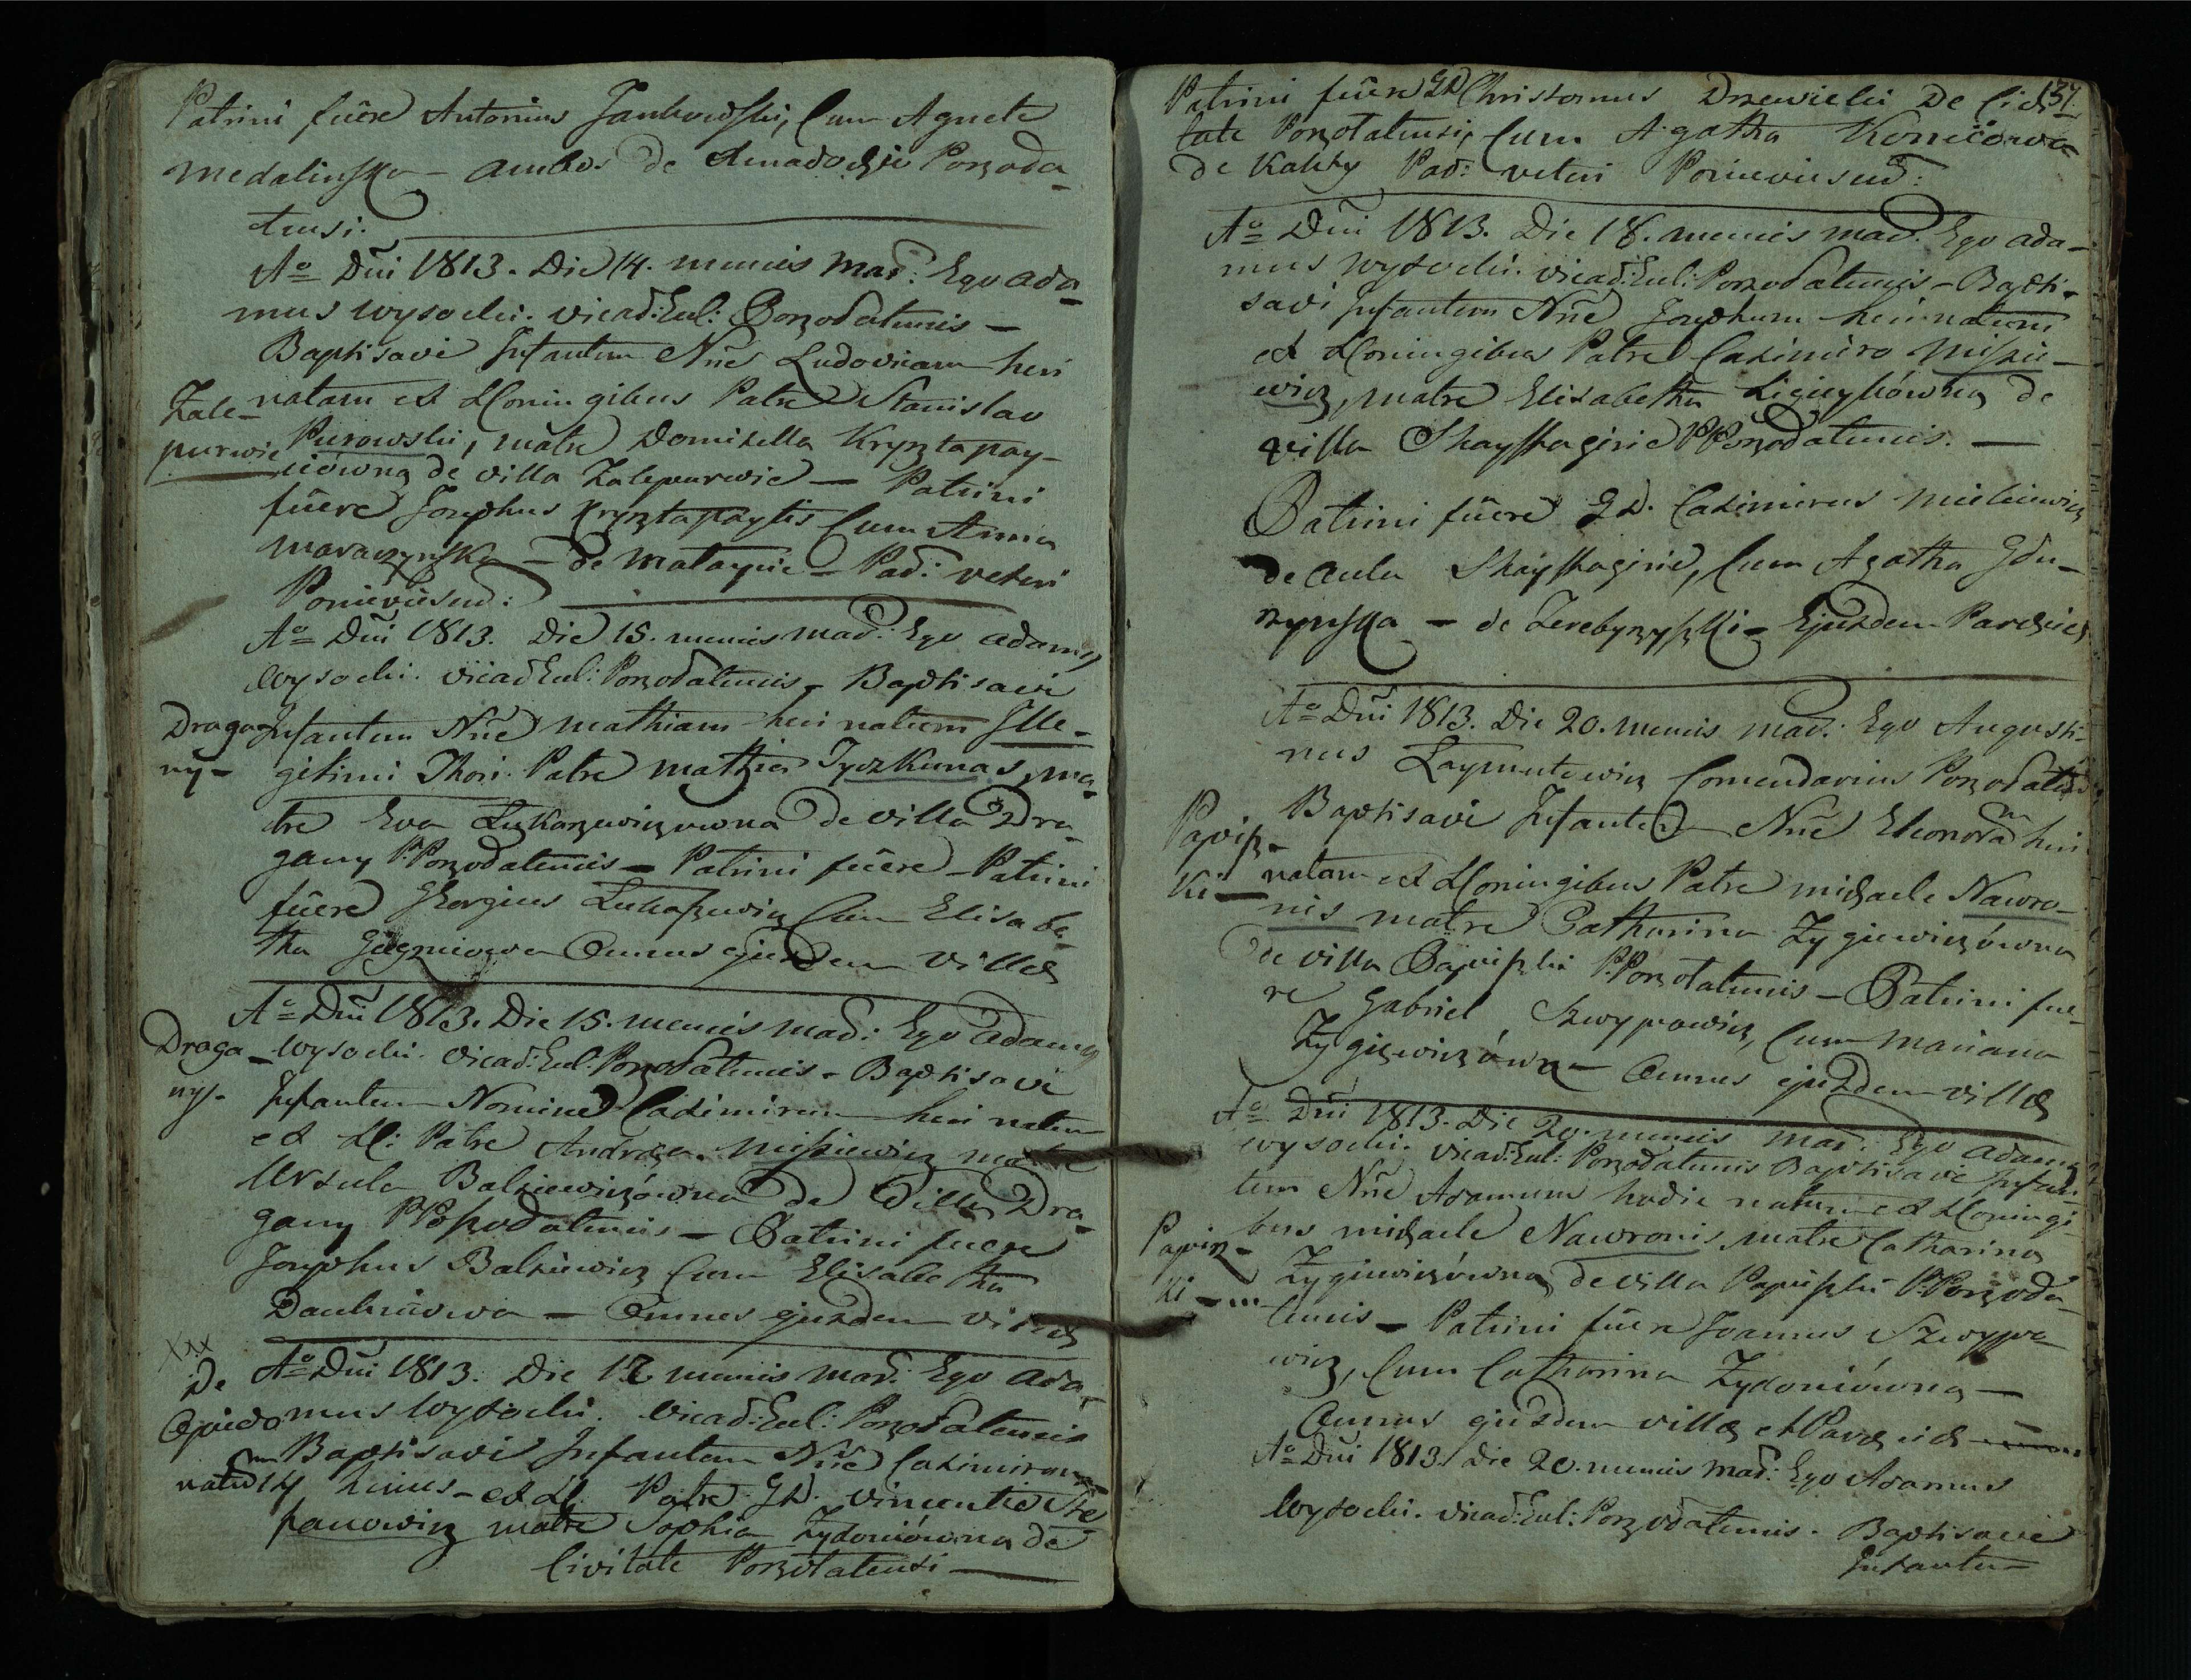 Patrini fuere Antonius Jankowski, Cum Agnete
Medalinska - ambo de
tensi.
Ao Dni 1813. Die 14. mensis Mar: Ego Ada-
mus Wysocki. Vicar: Eccl: Ponzodatensis -
Baptisavi Infantem Nne Ludovicam heri
natam ex LConiugibus Patre Stanislao
Zale-
purwie
Purowski, matre Domicella Krysztapay-
ciówną de villa Zalepurwie - Patrini
fuere Josephus Krysztapaytis Cum Anna
- de - Par: veteri
Ponievies:
Ao Dni 1813. Die 15. mensis mar: Ego Adamus
Wysocki. Vicar Eccl: Ponzodatensis - Baptisavi
Draga-
ny-
Infantem Nne Mathiam heri natum Ille-
gitimi Thori. Patre Mathia Tyszkunas, ma-
tre Eva de villa Dra-
gany P.Ponzodatensis - Patrini fuere - Patrini
fuere Georgius Cum Elisabe-
tha Omnes ejusdem Villæ
Ao Dni 1813. Die 15. mensis mar: Ego Adamus
Draga-
ny-
Wysocki. Vicar: Eccl: Ponzodatensis - Baptisavi
Infantem Nomine Casimirum heri natum
ex LC: Patre Andrea Misiewicz matre
Ursula Balsiewiczówna de Villa Dra-
gany P - Patrini fuere
Josephus Balsiewicz Cum Elisabetha
- Omnes ejusdem villæ
xxx
De
Opido
Ao Dni 1813. Die 17 mensis mar: Ego Ada-
mus Wysocki. Vicar: Eccl: Ponzodatensis
Baptisavi Infantem Nne Casimirum
natum 14 huius - ex LC. Patre GD. Vincentio Ste-
panowicz matre Sophia Zydoniówna de
Civitate Ponzotatensi
37.
Patrini fuere GD Drzewicki De Civi-
tate Ponzotatensi, Cum Agatha
de Par: veteri Ponievies:
Ao Dni 1813. Die 18. mensis mar: Ego Ada-
mus Wysocki. Vicar: Eccl: Ponzodatensis - Bapti-
savi Infantem Nne Josephum heri natum
ex LConiugibus Patre Casimiro Misie-
wicz, matre Elisabetha de
villa P Ponzodatensis. -
Patrini fuere GD. Casimirus Mickiewicz
de aula, Cum Agatha Gdu-
- de - Ejusdem Parochiæ
Ao Dni 1813. Die 20. mensis mar: Ego Augusti-
nus Laymutowicz Comendarius Ponzodaten
Papisz-
ki-
Baptisavi Infantem Nne Eleonoram heri
natam ex LConiugibus Patre michaele Nawro-
nis matre Catharina Zygiewiczówna
de villa Papiszki P.Ponzotatensis - Patrini fue-
re Gabriel Szwypowicz, Cum Mariana
Zygiewiczówna - Omnes ejusdem villæ
Ao Dni 1813. Die 20. mensis mar: Ego Adamus
Wysocki. Vicar: Eccl: Ponzodatensis Baptisavi Infan-
tem Nne Adamum hodie natum ex LConiugi-
Papisz-
ki-
bus michaele Nawronis, matre Catharina
Zygiewiczówna de villa Papiszki P.Ponzoda-
tensis - Patrini fuere Joannes Szwypo-
wicz, Cum Catharina Zydoniówna -
Omnes ejusdem villæ et Parochiæ
Ao Dni 1813. Die 20. mensis mar: Ego Adamus
Wysocki. Vicar: Eccl: Ponzodatensis. Baptisavi
Infantem